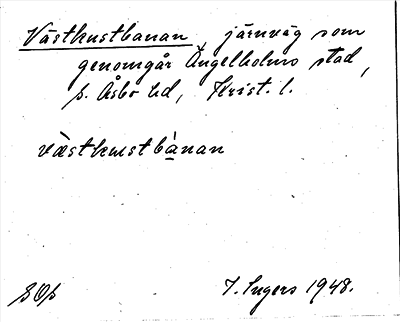 Västkustbanan, järnväg som
genomgår Ängelholms stad,
s. Åsbo hd, Krist. l.
västkustbànan
I. Ingers 1948.